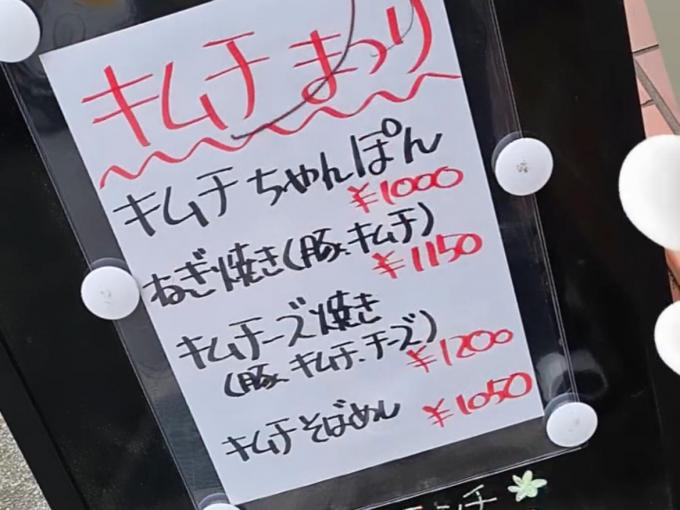 キムチまつり
キムチちゃんぽん
¥1000
ねぎ焼き(豚.キムチ)
¥1150
キムチーズ焼き
(豚.キムチ.チーズ)
¥1200
キムチそばめし
¥1050
ランチ